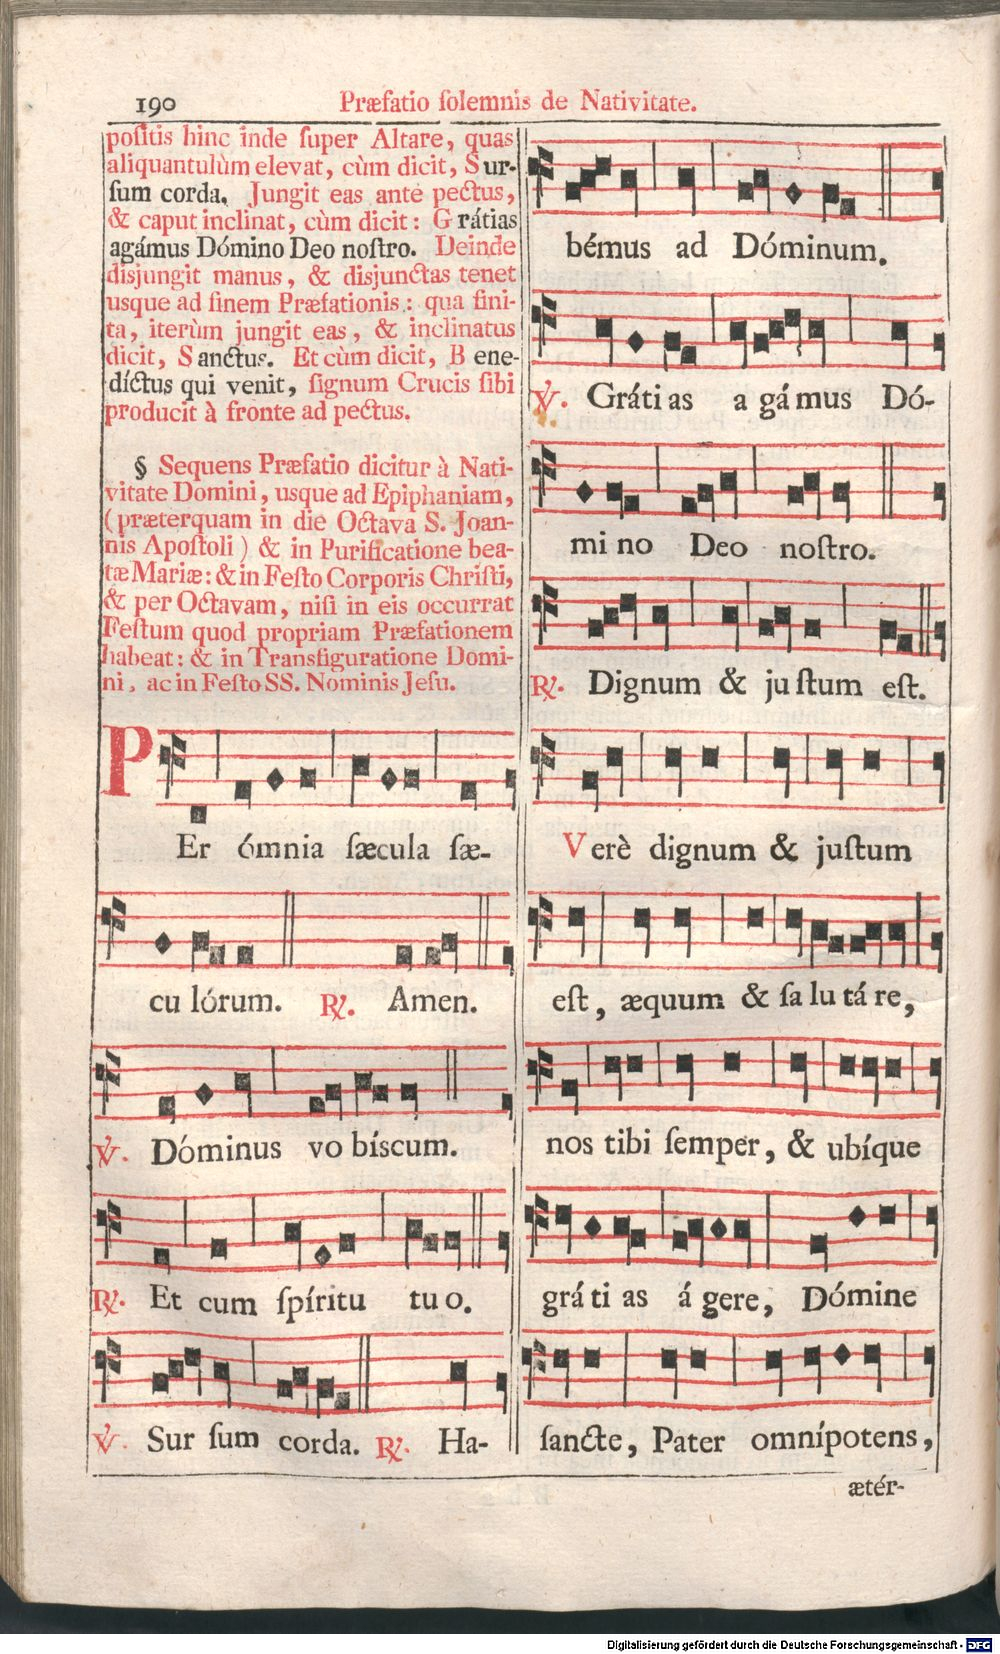 190
Præfatio ſolemnis de Nativitate.
poſitis hinc inde ſuper Altare, quas
aliquantulùm elevat, cùm dicit, Sur-
ſum corda. Jungit eas ante pectus,
& caput inclinat, cùm dicit: Grátias
agámus Dómino Deo noſtro. Deinde
disjungit manus, & disjunctas tenet
usque ad finem Præfationis: qua fini-
ta, iterùm jungit eas, & inclinatus
dicit, Sanctus. Et cùm dicit, Bene-
díctus qui venit, ſignum Crucis ſibi
producit à fronte ad pectus.
§ Sequens Præfatio dicitur à Nati-
vitate Domini, usque ad Epiphaniam,
(præterquam in die Octava S. Joan-
nis Apoſtoli) & in Purificatione bea-
tæ Mariæ: & in Feſto Corporis Chriſti,
& per Octavam, niſi in eis occurrat
Feſtum quod propriam Præfationem
habeat: & in Transfiguratione Domi-
ni, ac in Feſto SS. Nominis Jeſu.
P
Er ómnia ſæcula ſæ-
cu lórum. ℟. Amen.
℣. Dóminus vo bíscum.
℟. Et cum ſpíritu tu o.
℣. Sur ſum corda. ℟. Ha-
bémus ad Dóminum.
℣. Gráti as a gá mus Dó-
mi no Deo noſtro.
℟. Dignum & ju ſtum eſt.
Verè dignum & juſtum
eſt, æquum & ſa lu tá re,
nos tibi ſemper, & ubíque
grá ti as á gere, Dómine
ſancte, Pater omnípotens,
ætér-
Digitalisierung gefördert durch die Deutsche Forschungsgemeinschaft - DFG